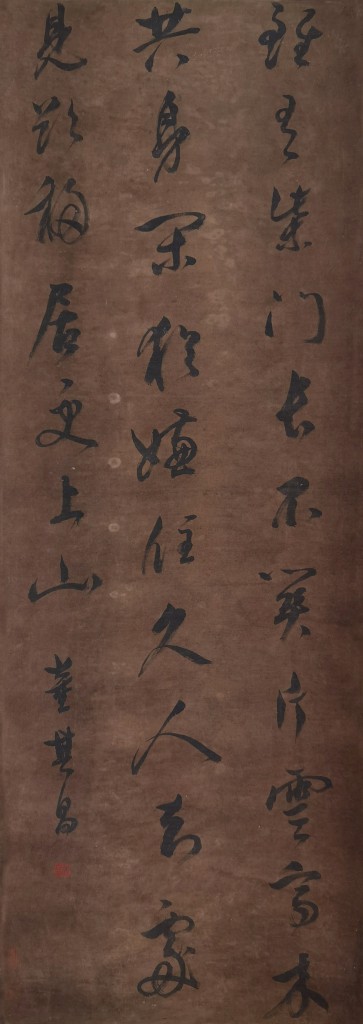 雖有柴門長不關片雲高木
共身閑猶嫌住久人知處
見欲移居更上山
董其昌